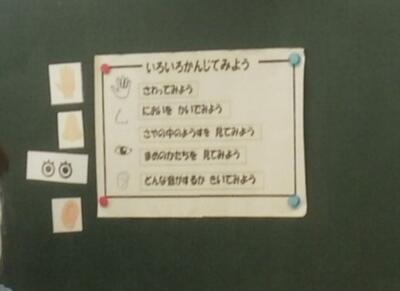 いろいろかんじてみよう
さわってみよう
においを かいでみよう
さやの中のようすを 見てみよう
まめのかたちを 見てみよう
どんな音がするか きいてみよう